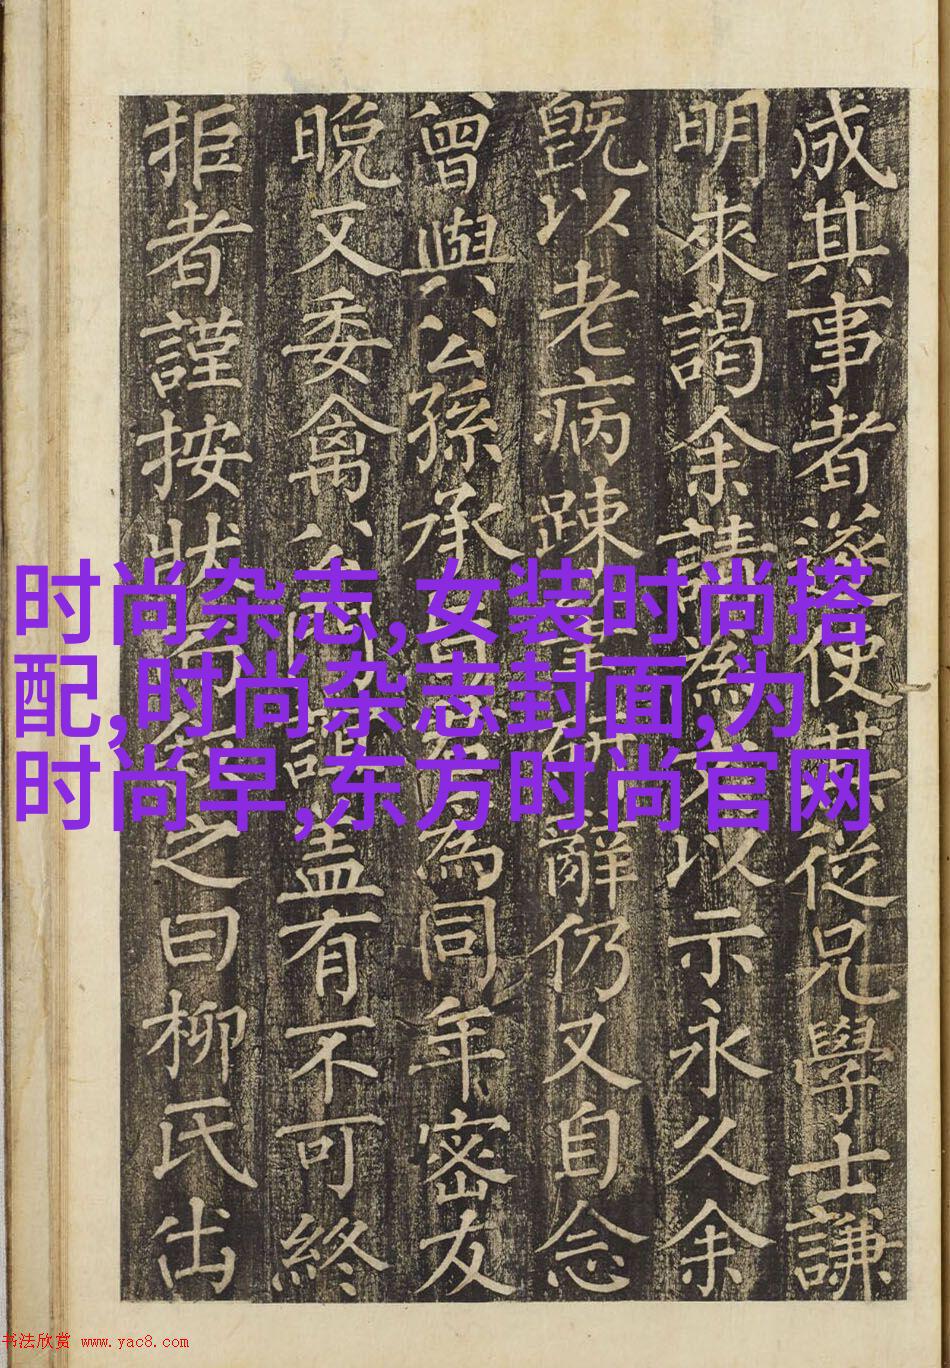 成其事者遂使其從兄學士謙
明來謁余請為文以示永久余
既以老病踈筆研辭仍又自念
曾與公孫承為同年密友
晚又委禽公門誼盖有不可終
拒者謹按狀而敘之曰柳氏出
时尚杂志,女装时尚搭
配,时尚杂志封面,为
时尚早,东方时尚官网
书法欣赏 www.yac8.com